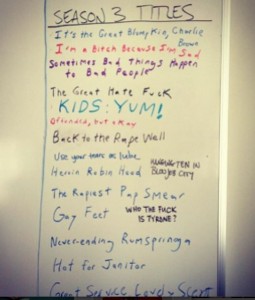 SEASON 3 TITLES
It's the Great Blumpkin, Charlie
Brown
I'm a Bitch Because I'm Sad
Sometimes Bad Things Happen
to Bad People
The Great Hate Fuck
KIDS: YUM!
Offended, but okay
Back to the Rape Well
Use your tears as lube
HANGING TEN IN
BLOWJOB CITY
Heroin Robin Hood
The Rapiest Pap Smear
Gay Feet
WHO THE FUCK
IS TYRONE?
Never-ending Rumspringa
Hot for Janitor
Great Service Lovely